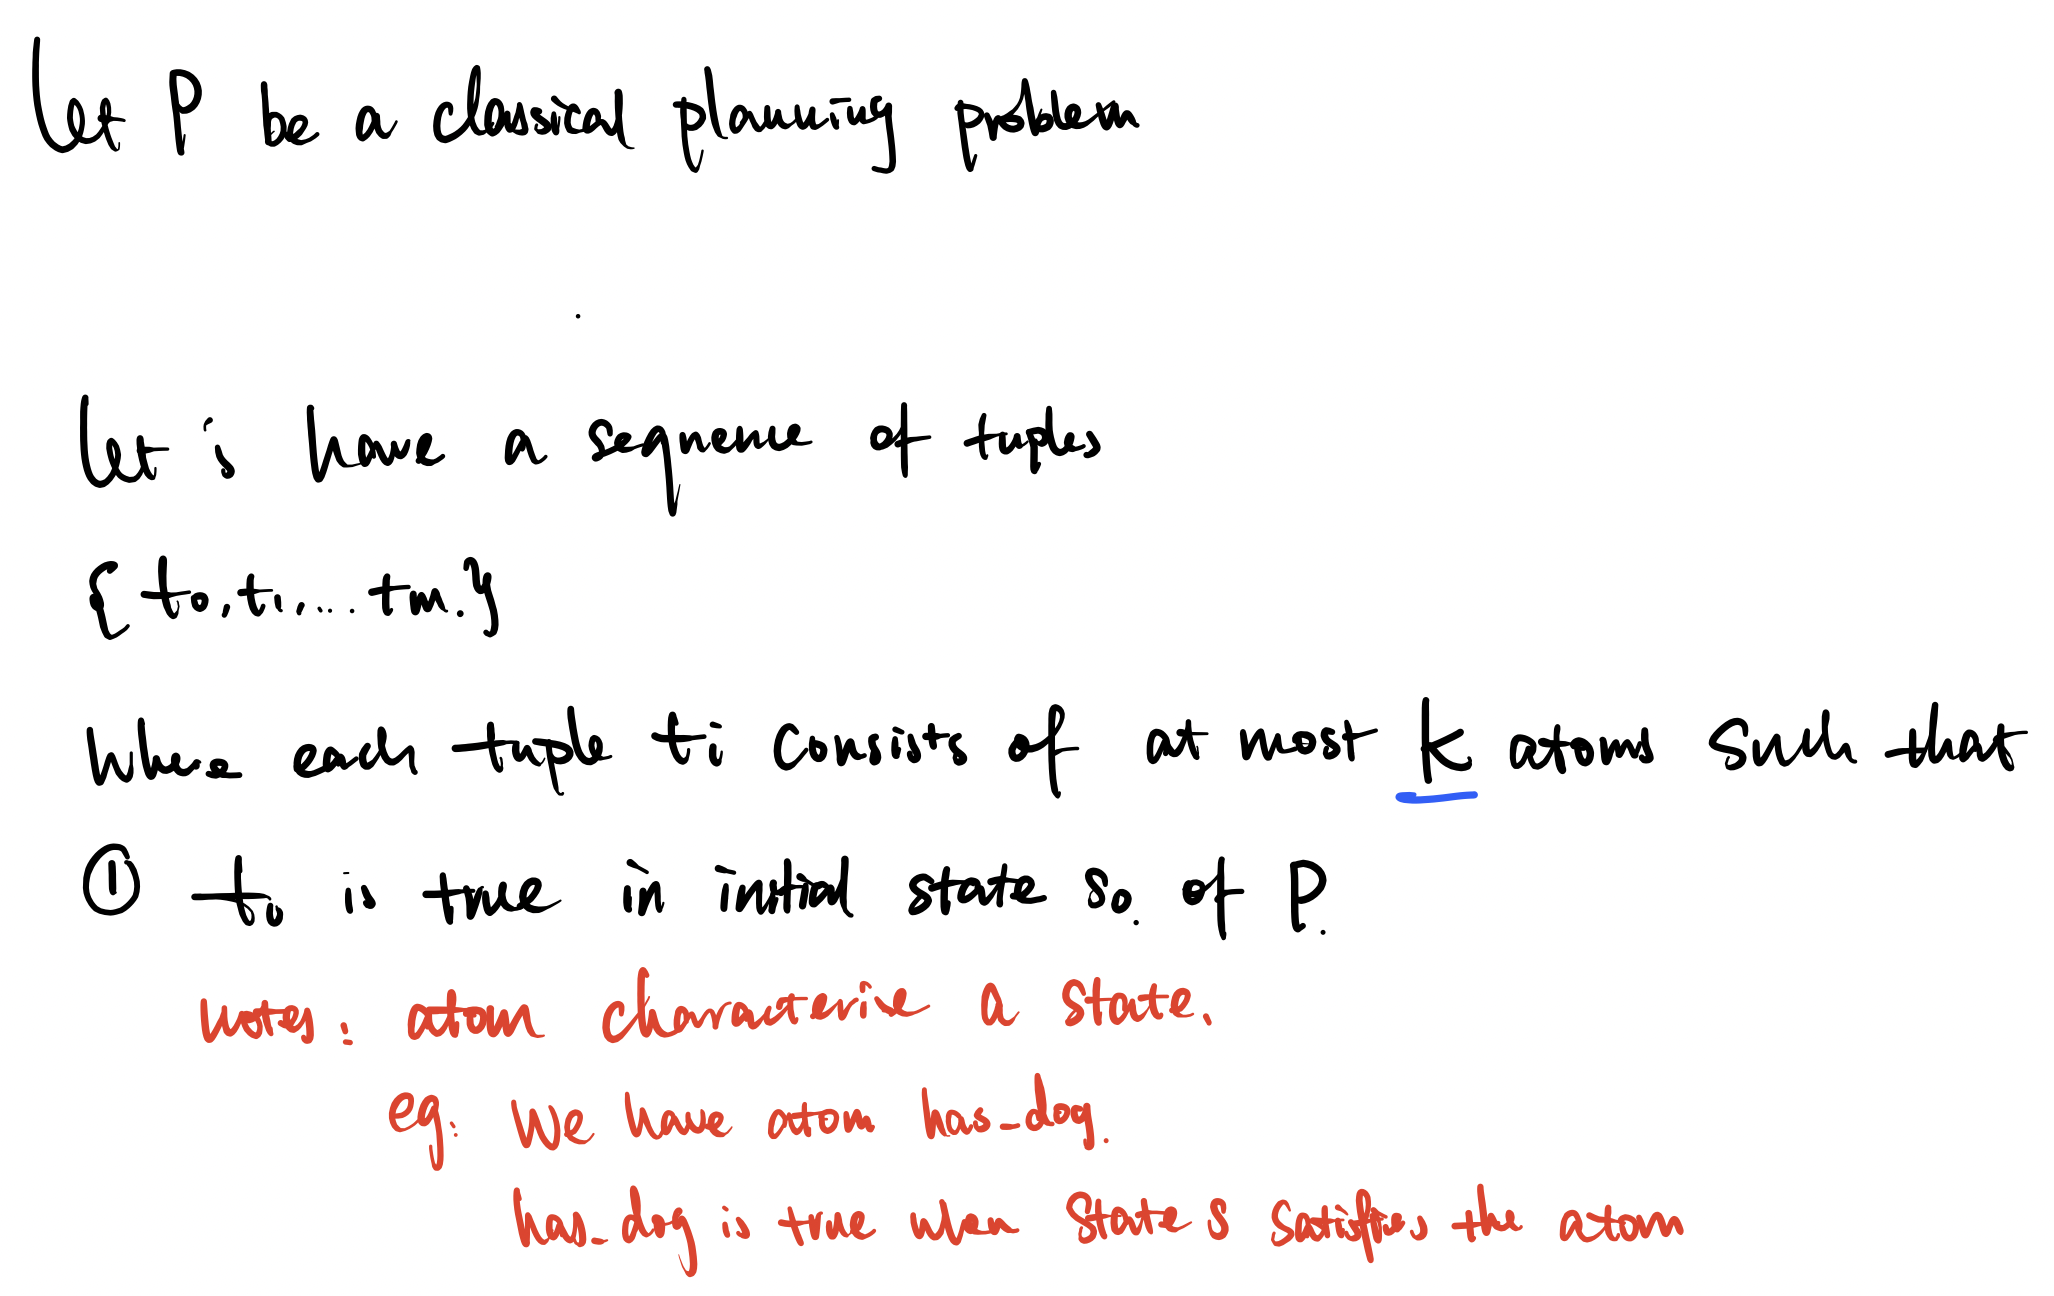 Let P be a classical planning problem
Let's have a sequence of tuples
{ t0, t1, ... tm. }
Where each tuple ti consists of at most k atoms such that
① t0 is true in initial state s0. of P.
notes: atom characterise a state.
eg. We have atom has_dog.
has_dog is true when state s satisfies the atom